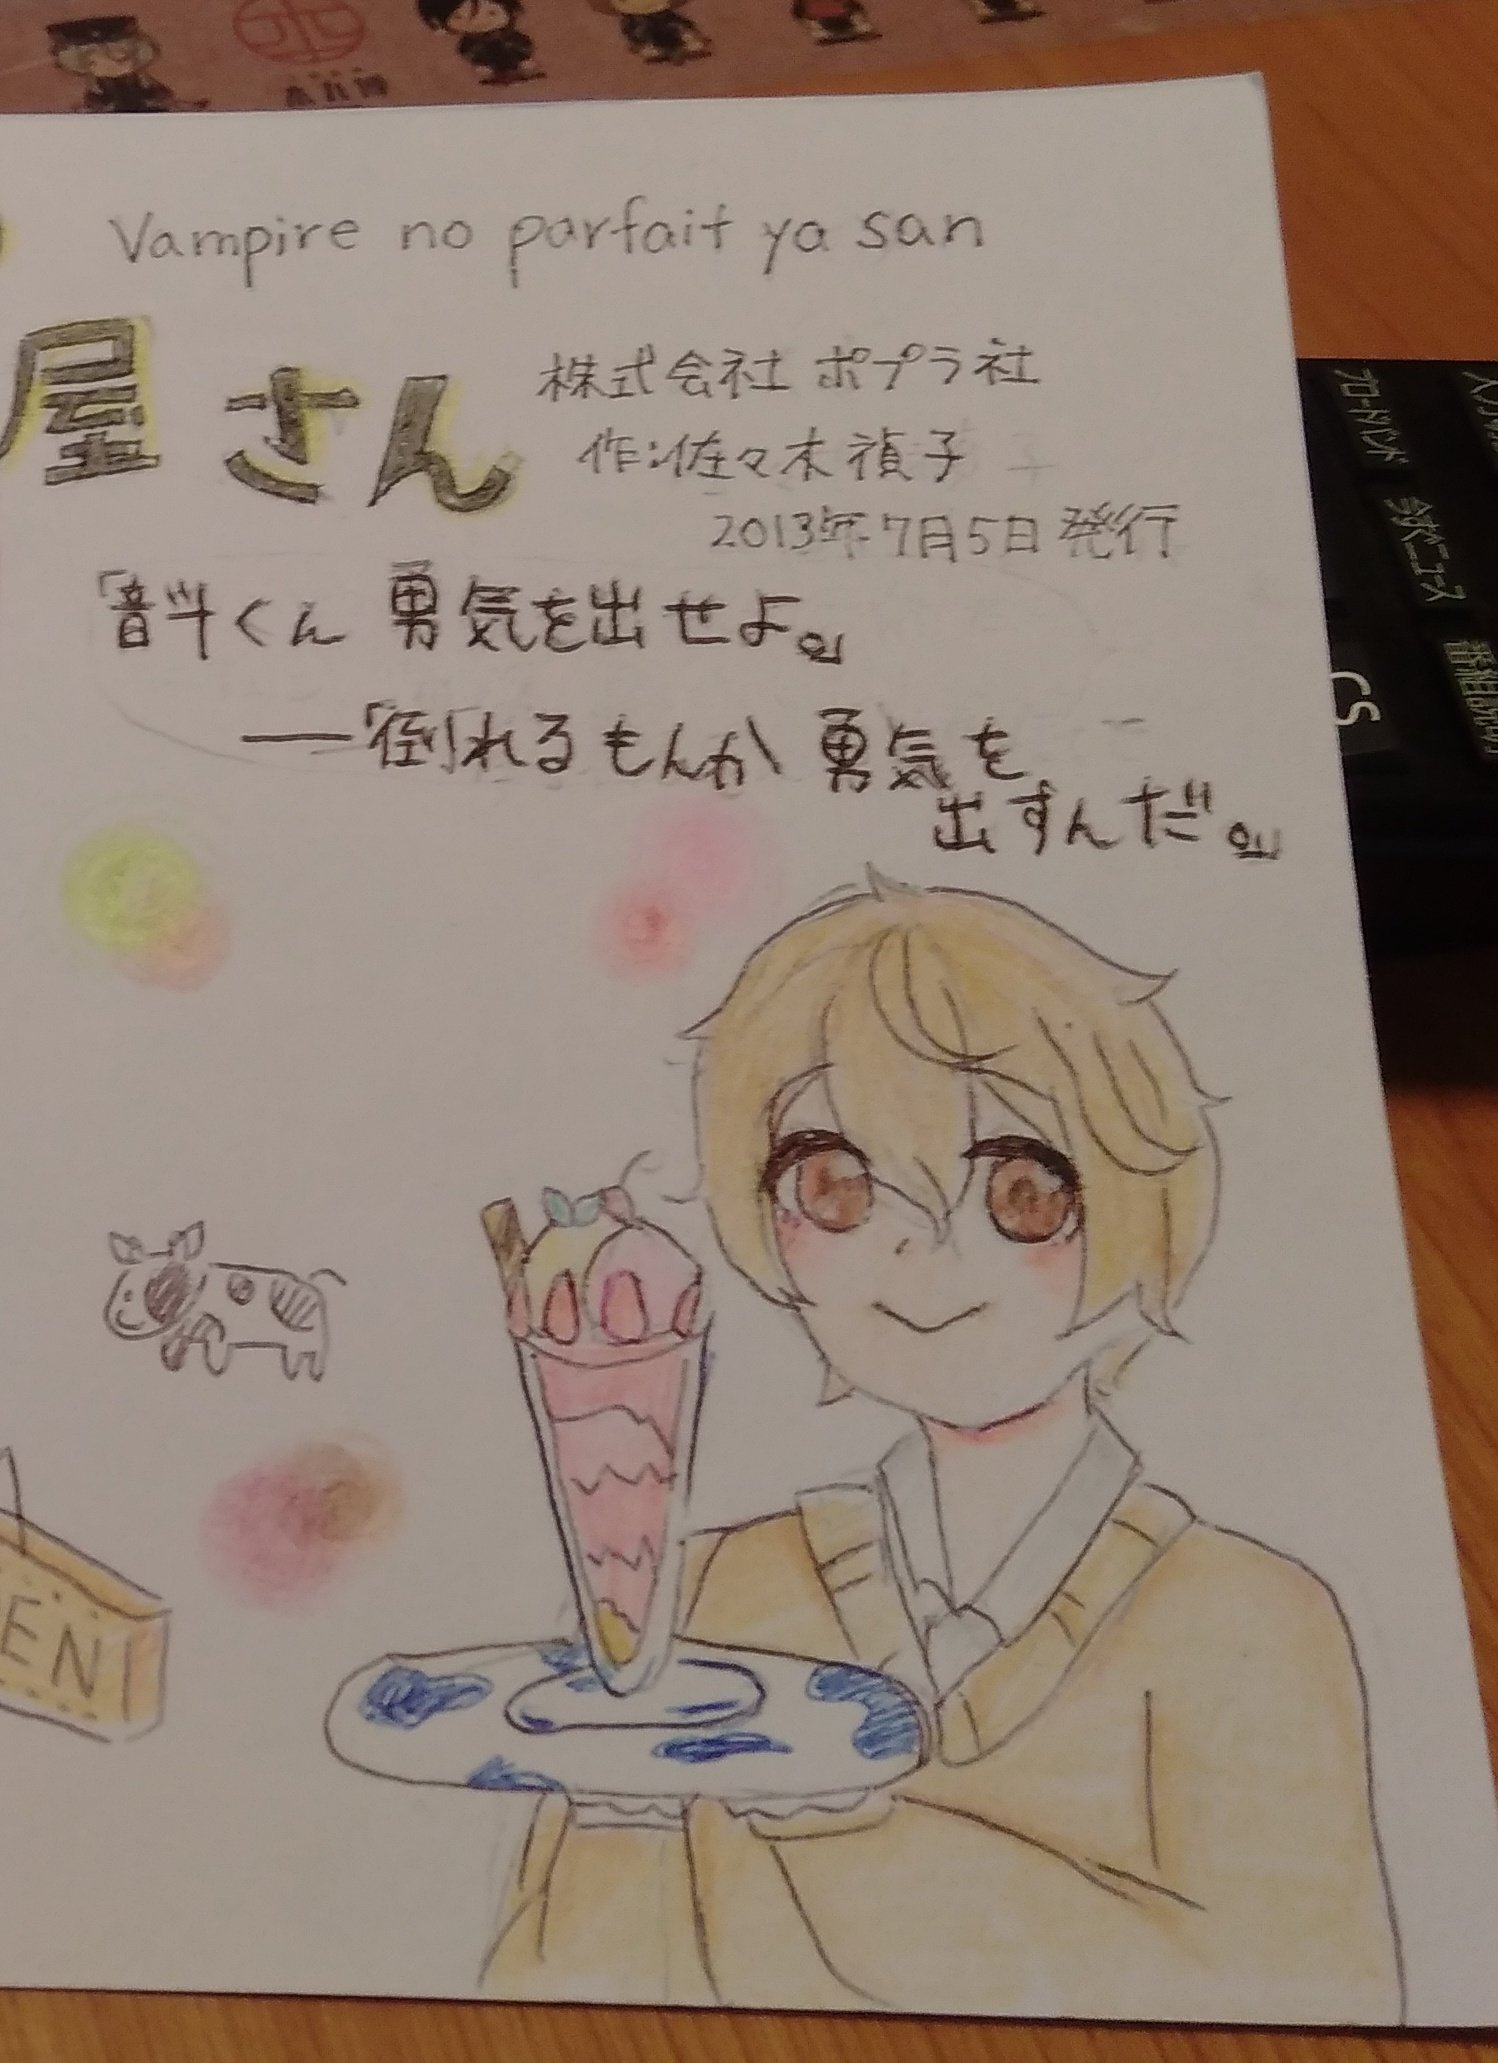 Vampire no parfait ya san
屋さん
株式会社 ポプラ社
作:佐々木禎子
2013年7月5日発行
「音斗くん 勇気を出せよ。」
――「倒れるもんか 勇気を
出すんだ。」
ENI
CS